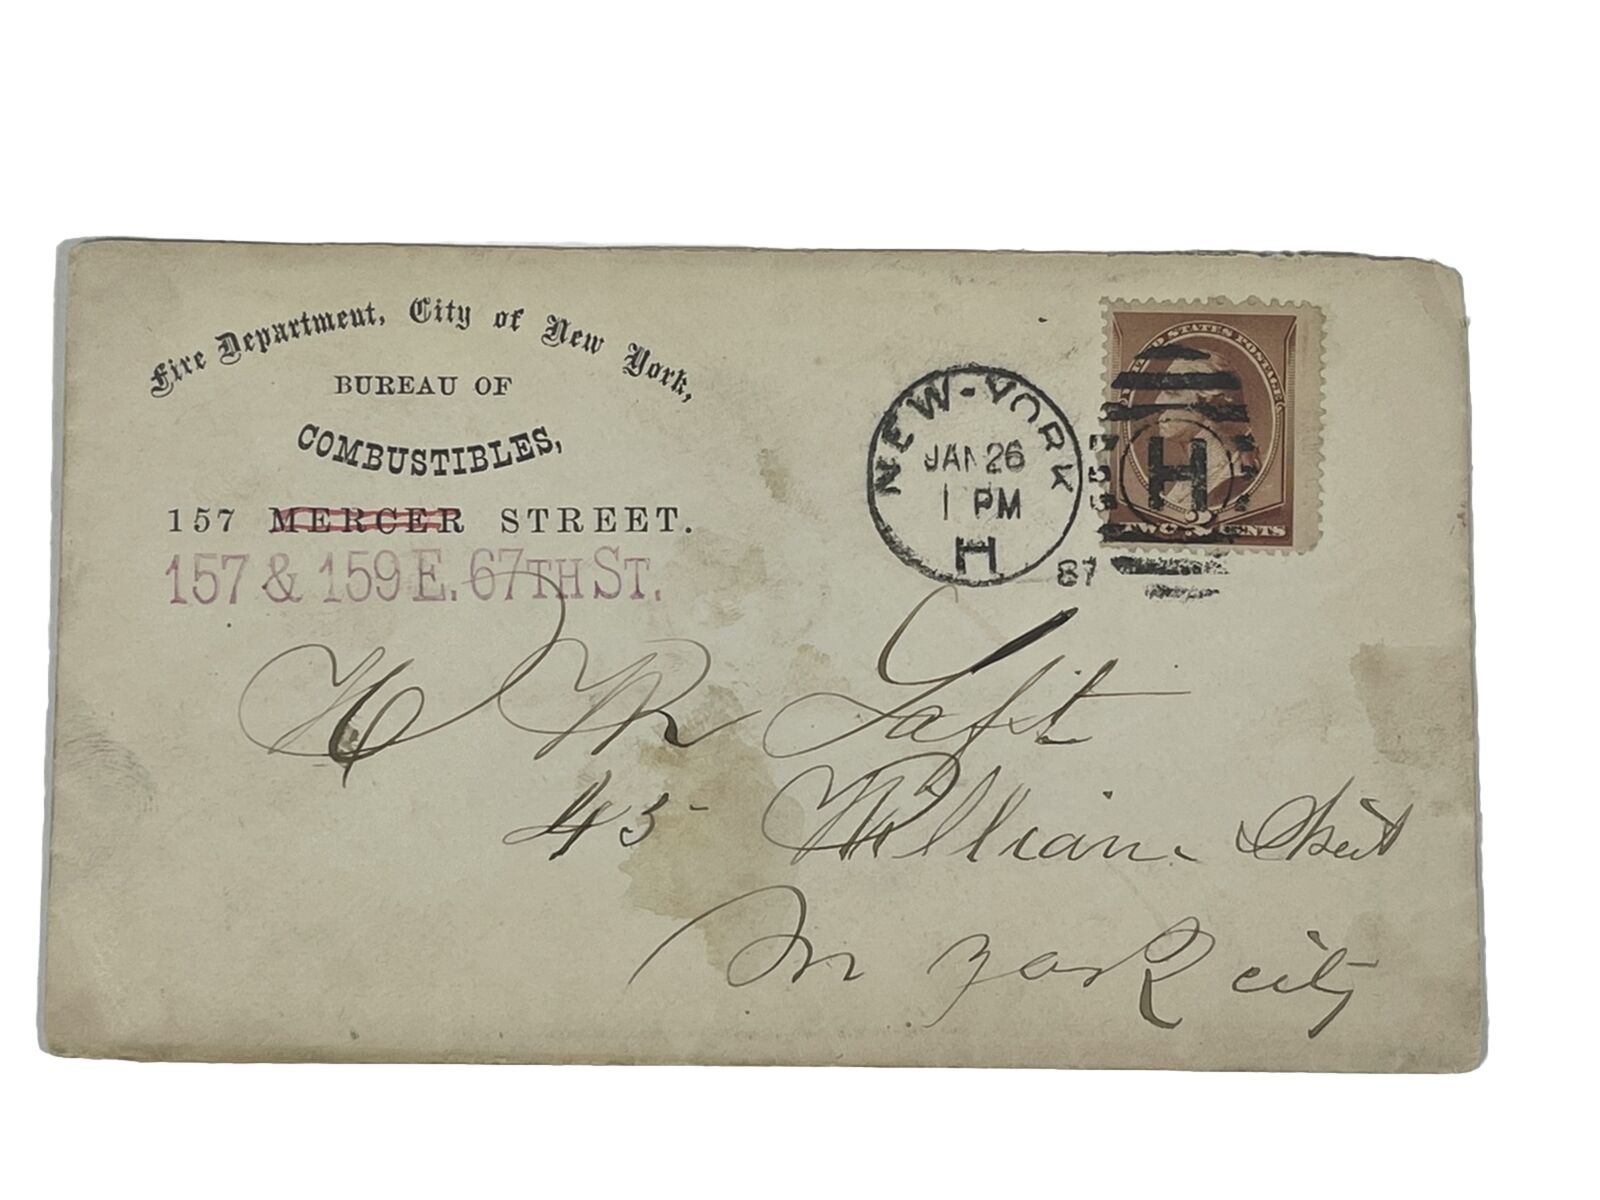 Fire Department, City of New York,
BUREAU OF
COMBUSTIBLES,
157 MERCER STREET.
157 & 159 E. 67TH ST.
NEW-YORK
JAN 26
1 PM
H
87
H
UNITED STATES POSTAGE
TWO 2 CENTS
H R Taft
45 William Street
New York city